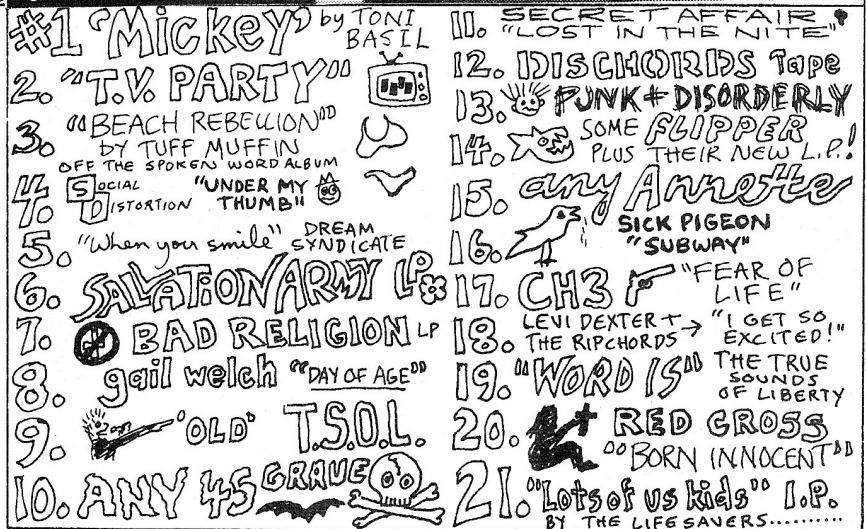 #1 'Mickey' by TONI BASIL
2. "T.V. PARTY"
3. "BEACH REBELLION"
BY TUFF MUFFIN
OFF THE SPOKEN WORD ALBUM
4. SOCIAL DISTORTION "UNDER MY THUMB"
5. "When you smile" DREAM SYNDICATE
6. SALVATION ARMY LP
7. BAD RELIGION LP
8. gail welch "DAY OF AGE"
9. 'OLD' T.S.O.L.
10. ANY 45 GRAVE
11. SECRET AFFAIR
"LOST IN THE NITE"
12. DISCHORDS Tape
13. PUNK + DISORDERLY
14. SOME FLIPPER
PLUS THEIR NEW L.P.!
15. any Annette
16. SICK PIGEON
"SUBWAY"
17. CH3 "FEAR OF LIFE"
18. LEVI DEXTER + THE RIPCHORDS → "I GET SO EXCITED!"
19. "WORD IS" THE TRUE SOUNDS OF LIBERTY
20. RED CROSS
"BORN INNOCENT"
21. "Lots of us kids" I.P.
BY THE LIFESAVERS..........